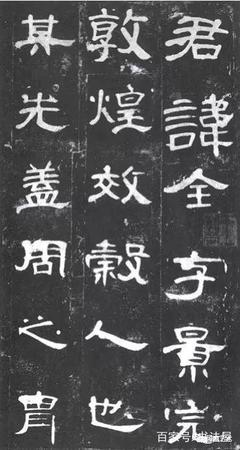 君諱全字景完
敦煌效穀人也
其先蓋周之胄
百家号/书法屋